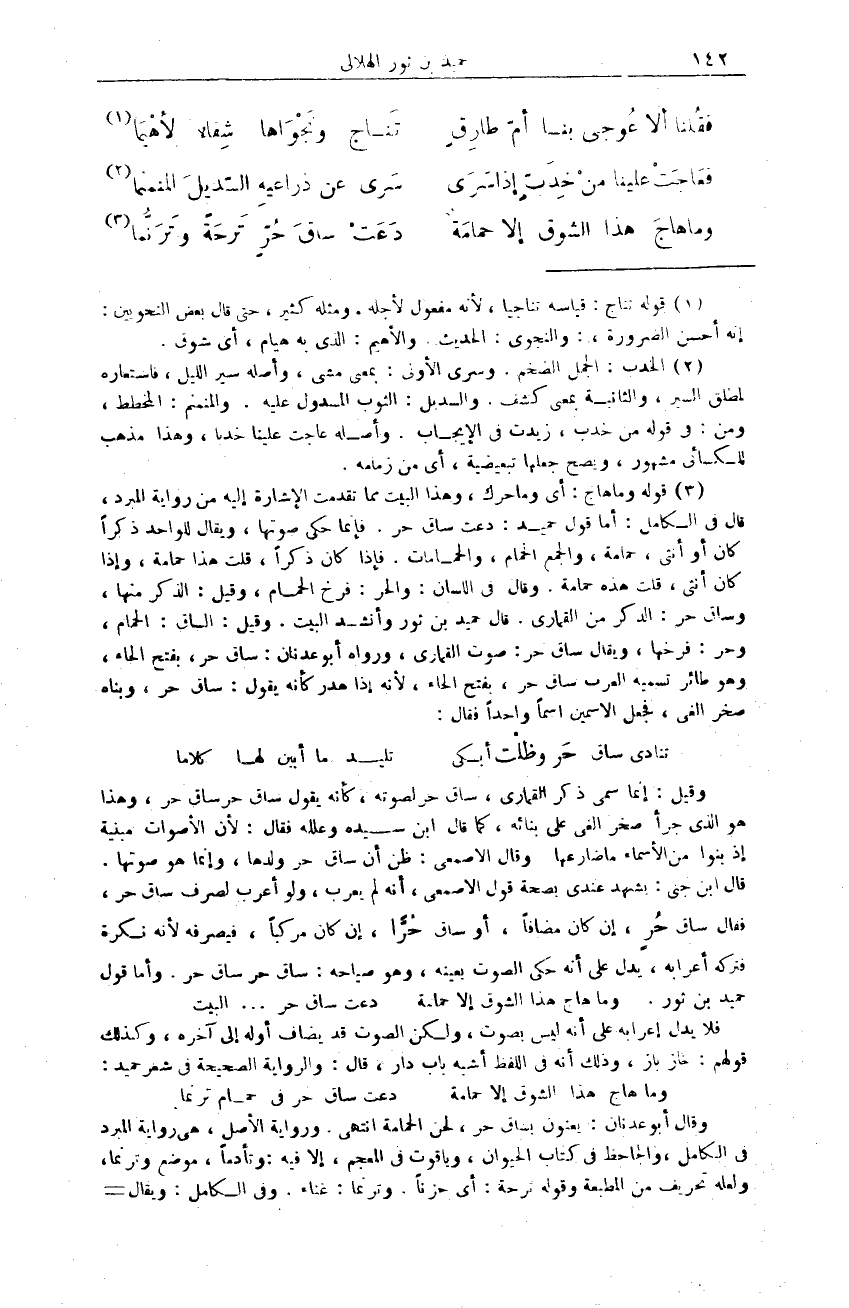 ١٤٢ حميد بن ثور الهلالى
فقُلنا ألا عُوجى بنا أمّ طارِقٍ تَناجٍ ونَجْوَاها شِفاء لأَهْيَمَا (١)
فعَاجَتْ علينا من خِدَبٍّ إذاسَرَى سَرى عن ذراعيه السّديلَ المنمنما (٢)
وماهاجَ هذا الشوق إلا حمامَة دَعَتْ ساقَ حُرٍّ تَرحَةً وتَرَنُّما (٣)
(١) قوله تناج : قياسه تناجيا ، لأنه مفعول لأجله . ومثله كثير ، حتى قال بعض النحويين :
إنه أحسن الضرورة ، : والنجوى : الحديث . والأهيم : الذى به هيام ، أى شوق .
(٢) الخدب : الجمل الضخم . وسرى الأولى : بمعى مشى ، وأصله سير الليل ، فاستعاره
لمطلق السير ، والثانيـة بمعى كشف . والسديل : الثوب المسدول عليه . والمنمنم : المخطط ،
ومن : فى قوله من خدب ، زيدت فى الإيجـاب . وأصـله عاجت علينا خدبا ، وهذا مذهب
للـكسائى مشهور ، ويصح جعلها تبعيضية ، أى من زمامه .
(٣) قوله وماهاج : أى وماحرك ، وهذا البيت مما تقدمت الإشارة إليه من رواية المبرد ،
قال فى الـكامل : أما قول حميـد : دعت ساق حر . فإنما حكى صوتها ، ويقال للواحد ذكراً
كان أو أنثى ، حمامة ، والجمع الحمام ، والحمـامات . فإذا كان ذكراً ، قلت هذا حمامة ، وإذا
كان أنثى ، قلت هذه حمامة . وقال فى اللسان : والحر : فرخ الحمـام ، وقيل : الذكر منها ،
وساق حر : الذكر من القمارى . قال حميد بن ثور وأنشـد البيت . وقيل : الساق : الحمام ،
وحر : فرخها ، ويقال ساق حر: صوت القمارى ، ورواه أبوعدنان : ساق حر، بفتح الحاء ،
وهو طائر تسميه العرب ساق حر ، بفتح الحاء ، لأنه إذا هدر كأنه يقول : ساق حر ، وبناه
صخر الغى ، فجعل الاسمين اسماً واحداً فقال :
تنادى ساق حَر وظلْت أبـكى تليـد ما أبين لهـا كلاما
وقيل : إنما سمى ذكر القمارى ، ساق حر لصوته ، كأنه يقول ساق حرساق حر ، وهذا
هو الذى جرأ صخر الغى على بنائه ، كما قال ابن سـيده وعلله فقال : لأن الأصوات مبنية
إذ بنوا من‌الأسماء ماضارعها وقال الاصمعى : ظن أن ساق حر ولدها ، وإنما هو صوتها .
قال ابن جنى : يشهد عندى بصحة قول الاصمعى ، أنه لم يعرب ، ولو أعرب لصرف ساق حر ،
فقال ساق حُرٍ ، إن كان مضافاً ، أو ساق حُرًّا ، إن كان مركباً ، فيصرفه لأنه نـكرة
فتركه أعرابه ، يدل على أنه حكى الصوت بعينه ، وهو صياحه : ساق حر ساق حر . وأما قول
حميد بن ثور . وما هاج هذا الشوق إلا حمامة دعت ساق حر ... البيت
فلا يدل إعرابه على أنه ليس بصوت ، ولـكن الصوت قد يضاف أوله إلى آخره ، وكـذلك
قولهم : خاز باز ، وذلك أنه فى اللفظ أشبه باب دار ، قال : والرواية الصحيحة فى شعرحميد :
وما هاج هذا الشوق إلا حمامة دعت ساق حر فى حمـام ترنما
وقال أبوعدنان : يعنون بساق حر ، لحن الحمامة انتهى . ورواية الأصل ، هى‌رواية المبرد
فى الـكامل ،والجاحظ فى كتاب الحيوان ، وياقوت فى المعجم ، إلا فيه :وتأدماً ، موضع وترنما،
ولعله تحريف من المطبعة وقوله ترحة : أى حزناً . وترنما : غناء . وفى الـكامل : ويقال =